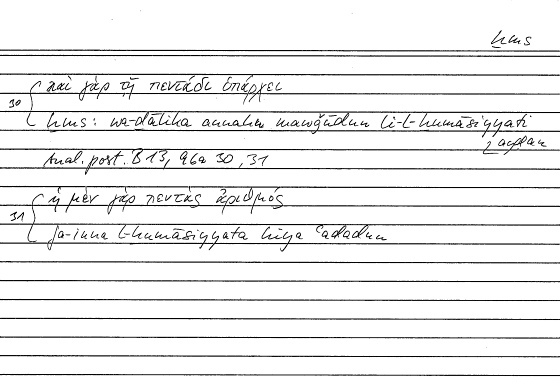 ḫms
30 { καὶ γὰρ τῇ πεντάδι ὑπάρχει
ḫms: wa-ḏālika annahu mawǧūdun li-l-ḫumāsiyyati
ayḍan
Anal. post. B 13, 96a 30, 31
31 { ἡ μὲν γὰρ πεντὰς ἀριθμός
fa-inna l-ḫumāsiyyata hiya ʿadadun